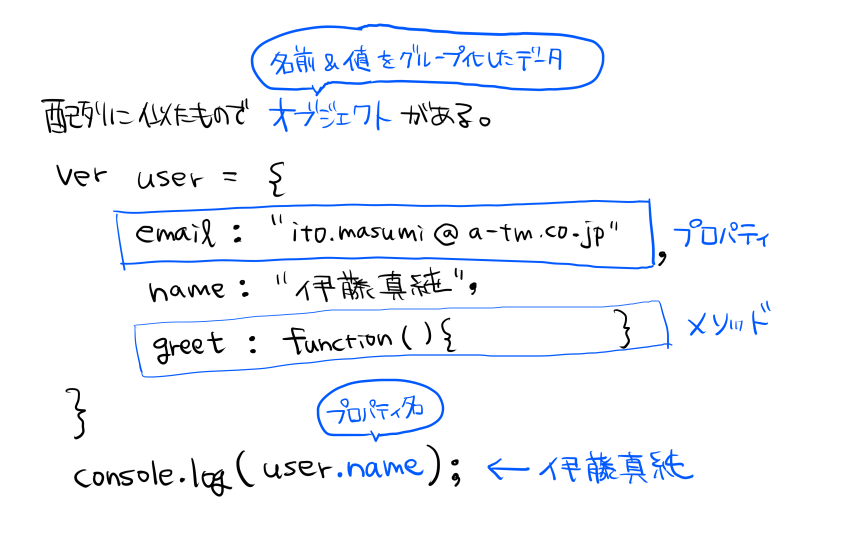 名前&値をグループ化したデータ
配列に似たもので オブジェクト がある。
ver user = {
email : "ito.masumi@a-tm.co.jp" , プロパティ
name : "伊藤真純",
greet : function(){ } メソッド
}
プロパティ名
console.log(user.name); ← 伊藤真純